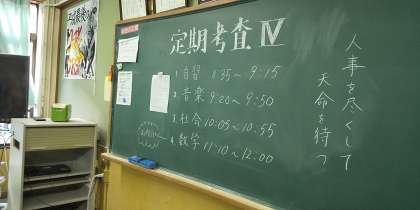 定期考査 Ⅳ
1. 自習 8:35～9:15
2. 音楽 9:20～9:50
3. 社会 10:05～10:55
4. 数学 11:10～12:00
人事を尽くして
天命を待つ